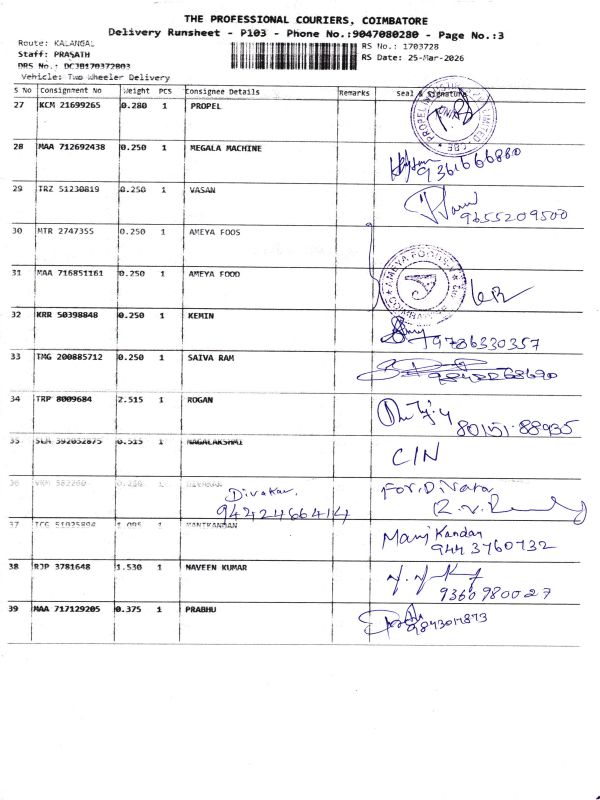 THE PROFESSIONAL COURIERS, COIMBATORE
Delivery Runsheet - P103 - Phone No.:9047080280 - Page No.:3
Route: KALANGAL
RS No.: 1703728
Staff: PRASATH
RS Date: 25-Mar-2026
DRS No.: DCJB170372803
Vehicle: Two Wheeler Delivery
S No Consignment No Weight PCS Consignee Details Remarks Seal & Signature
27 KCM 21699265 0.280 1 PROPEL
28 MAA 712692438 0.250 1 MEGALA MACHINE
9361666880
29 TRZ 51230819 0.250 1 VASAN
9655209500
30 MTR 2747355 0.250 1 AMEYA FOOS
31 MAA 716851161 0.250 1 AMEYA FOOD
AMEYA FOODS
32 KRR 50398848 0.250 1 KEMIN
9786330357
33 TMG 200885712 0.250 1 SAIVA RAM
34 TRP 8009684 2.515 1 ROGAN
80151-88935
35 392032875 0.515 1 NAGALAKSHMI
C/N
36 1 Divakar. For. Divakar
9442466414
37 1.095 1 MANIKANDAN
Mani Kandan
9443760732
38 RJP 3781648 1.530 1 NAVEEN KUMAR
9360980027
39 MAA 717129205 0.375 1 PRABHU